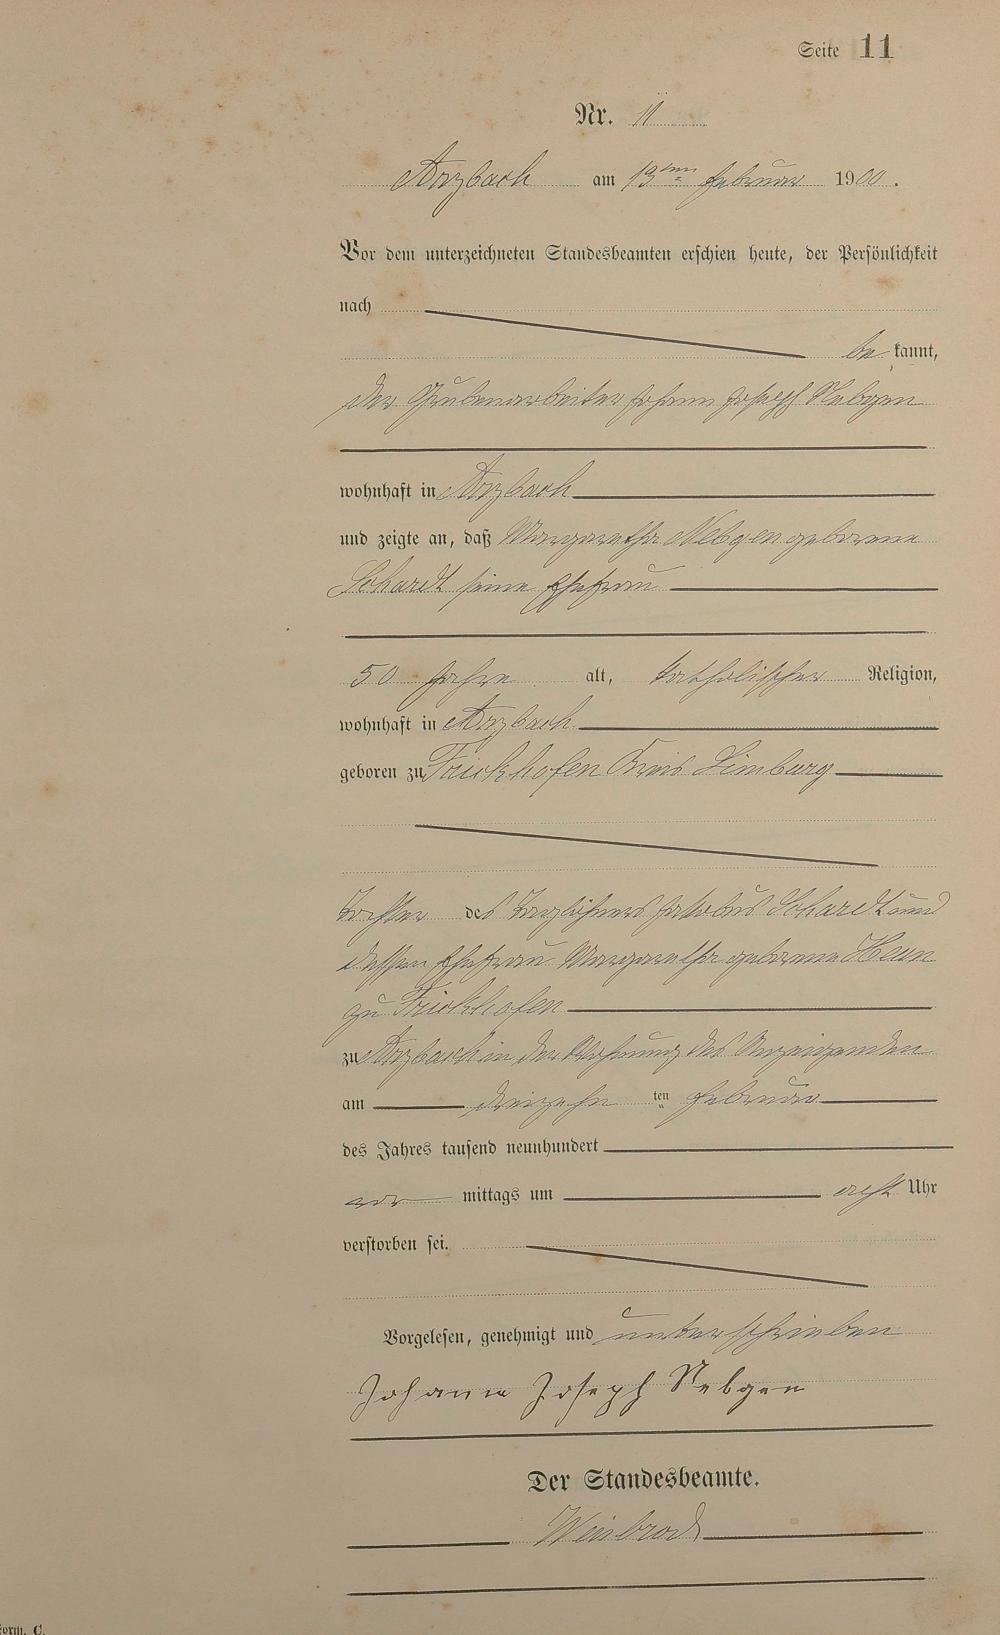 Seite 11
Nr. 11
Arzbach am 13ten Februar 1900.
Vor dem unterzeichneten Standesbeamten erschien heute, der Persönlichkeit
nach
be kannt,
der Grubenarbeiter Johann Joseph Nebgen
wohnhaft in Arzbach
und zeigte an, daß Margaretha Nebgen geborene
Schardt seine Ehefrau
50 Jahre alt, katholischer Religion,
wohnhaft in Arzbach
geboren zu Frickhofen Kreis Limburg
Tochter des Taglöhners Jakobus Schardt und
dessen Ehefrau Margaretha geborene Heun
zu Frickhofen
zu Arzbach in der Wohnung des Anzeigenden
am dreizehn ten Februar
des Jahres tausend neunhundert
vor mittags um acht Uhr
verstorben sei.
Vorgelesen, genehmigt und unterschrieben
Johann Joseph Nebgen
Der Standesbeamte.
Form. C.